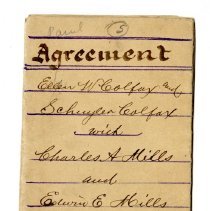 Paul (5)
Agreement
Ellen W Colfax and
Schuyler Colfax
with
Charles A Mills
and
Edwin E Mills